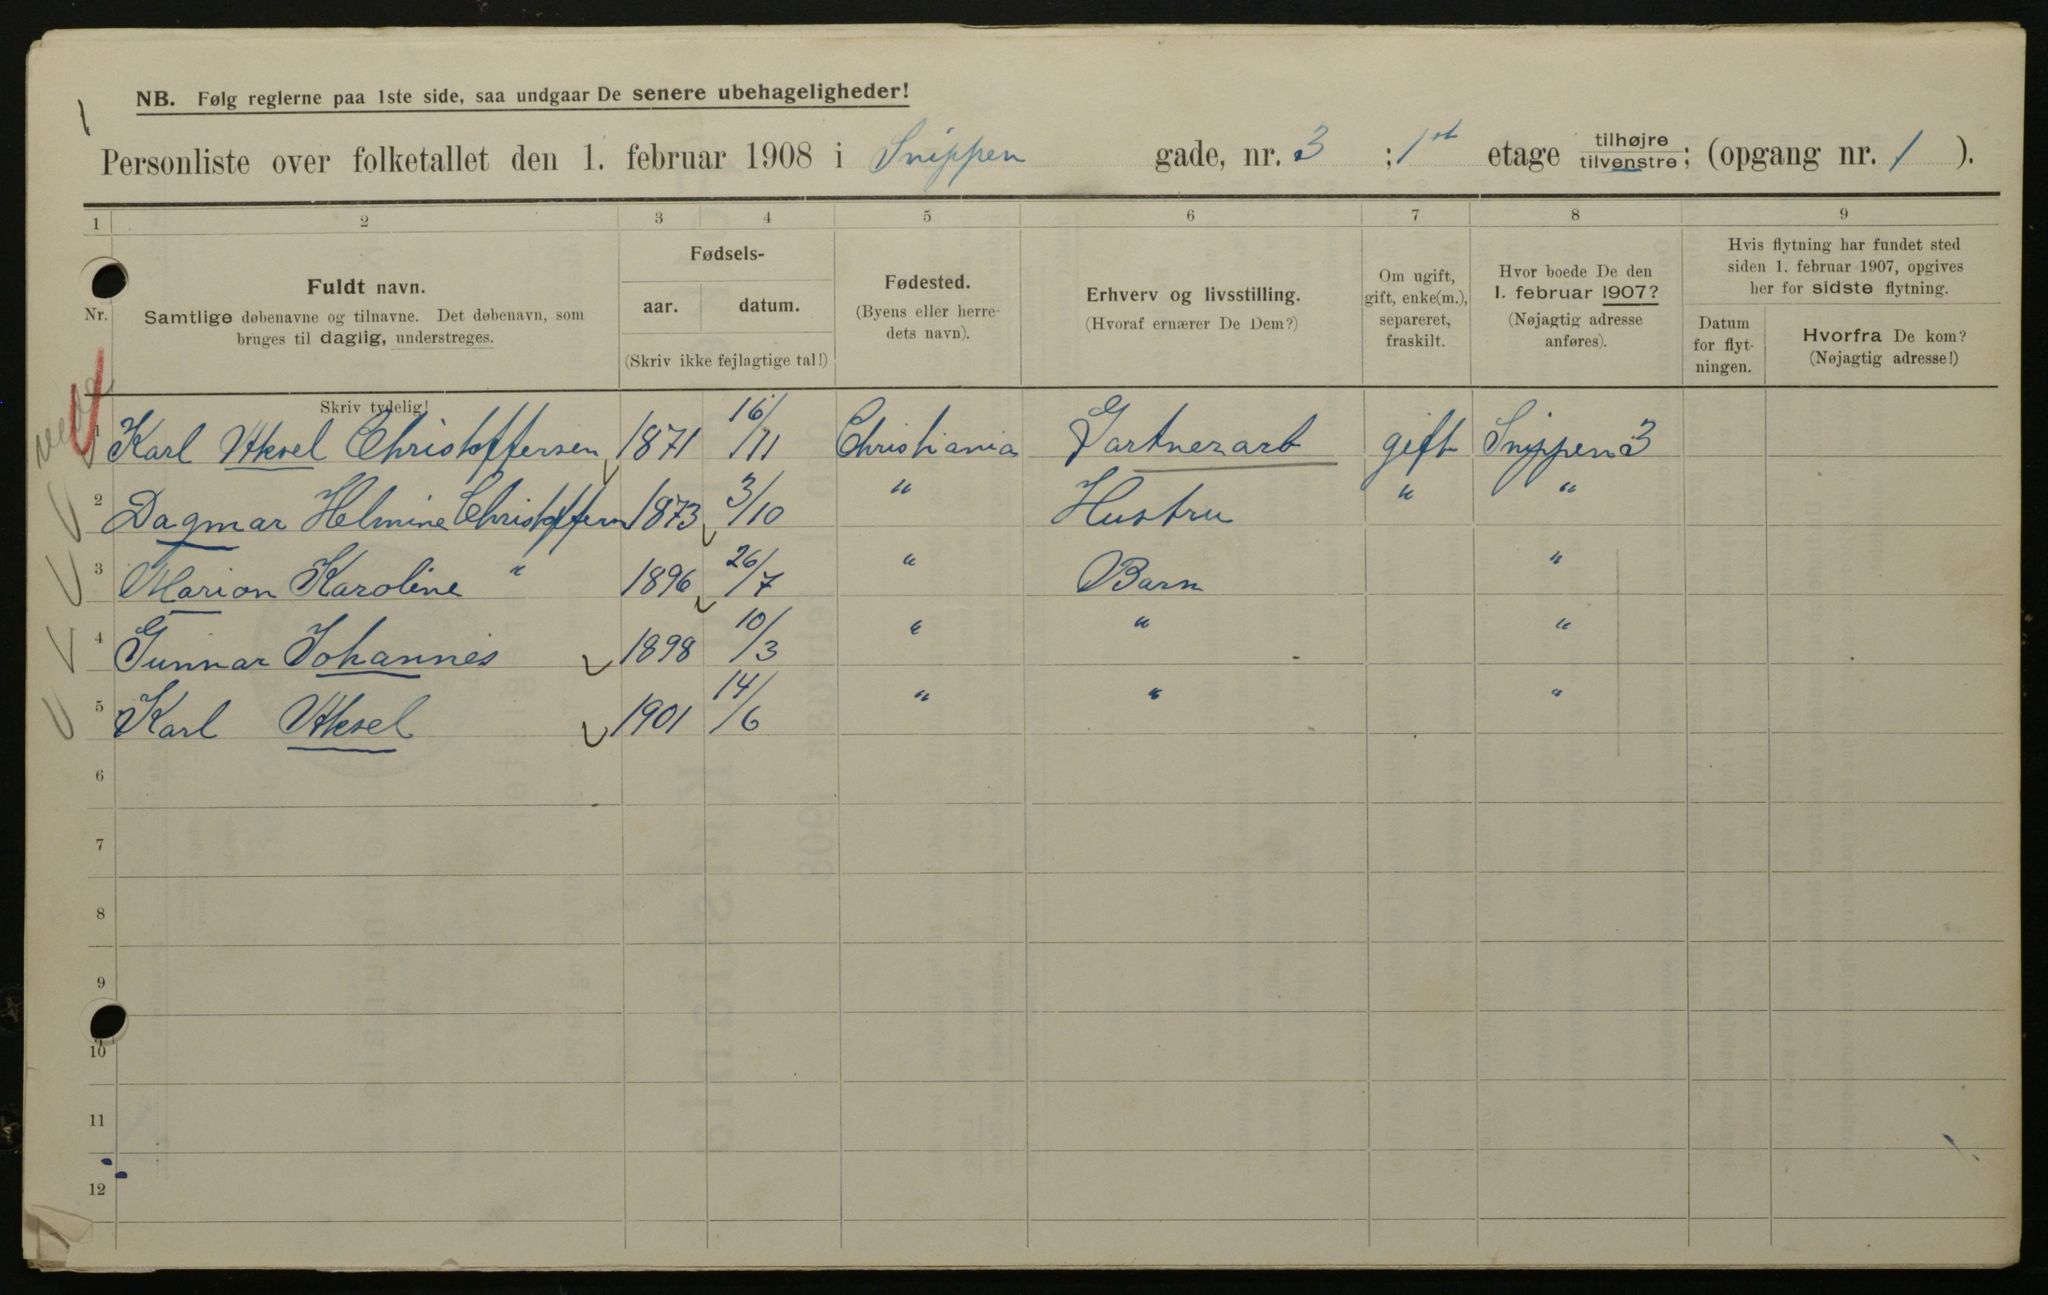 NB. Følg reglerne paa 1ste side, saa undgaar De senere ubehageligheder!
Personliste over folketallet den 1. februar 1908 i Snippen gade, nr. 3 ; 1st etage tilhøjre tilvenstre; (opgang nr. 1 ).
1 2 3 4 5 6 7 8 9
Nr.
Fuldt navn.
Samtlige døbenavne og tilnavne. Det døbenavn, som
bruges til daglig, understreges.
Skriv tydelig!
Fødsels-
aar. datum.
(Skriv ikke fejlagtige tal!)
Fødested.
(Byens eller herre-
dets navn).
Erhverv og livsstilling.
(Hvoraf ernærer De Dem?)
Om ugift,
gift, enke(m.),
separeret,
fraskilt.
Hvor boede De den
1. februar 1907?
(Nøjagtig adresse
anføres).
Hvis flytning har fundet sted
siden 1. februar 1907, opgives
her for sidste flytning.
Datum
for flyt-
ningen.
Hvorfra De kom?
(Nøjagtig adresse!)
1 Karl Aksel Christoffersen 1871 16/11 Christiania Gartnerarb gift Snippen 3
2 Dagmar Helmine Christoffersen 1873 3/10 " Hustru " "
3 Marion Karoline " 1896 26/7 " Barn "
4 Gunnar Johannes 1898 10/3 " " "
5 Karl Aksel 1901 14/6 " " "
6
7
8
9
10
11
12